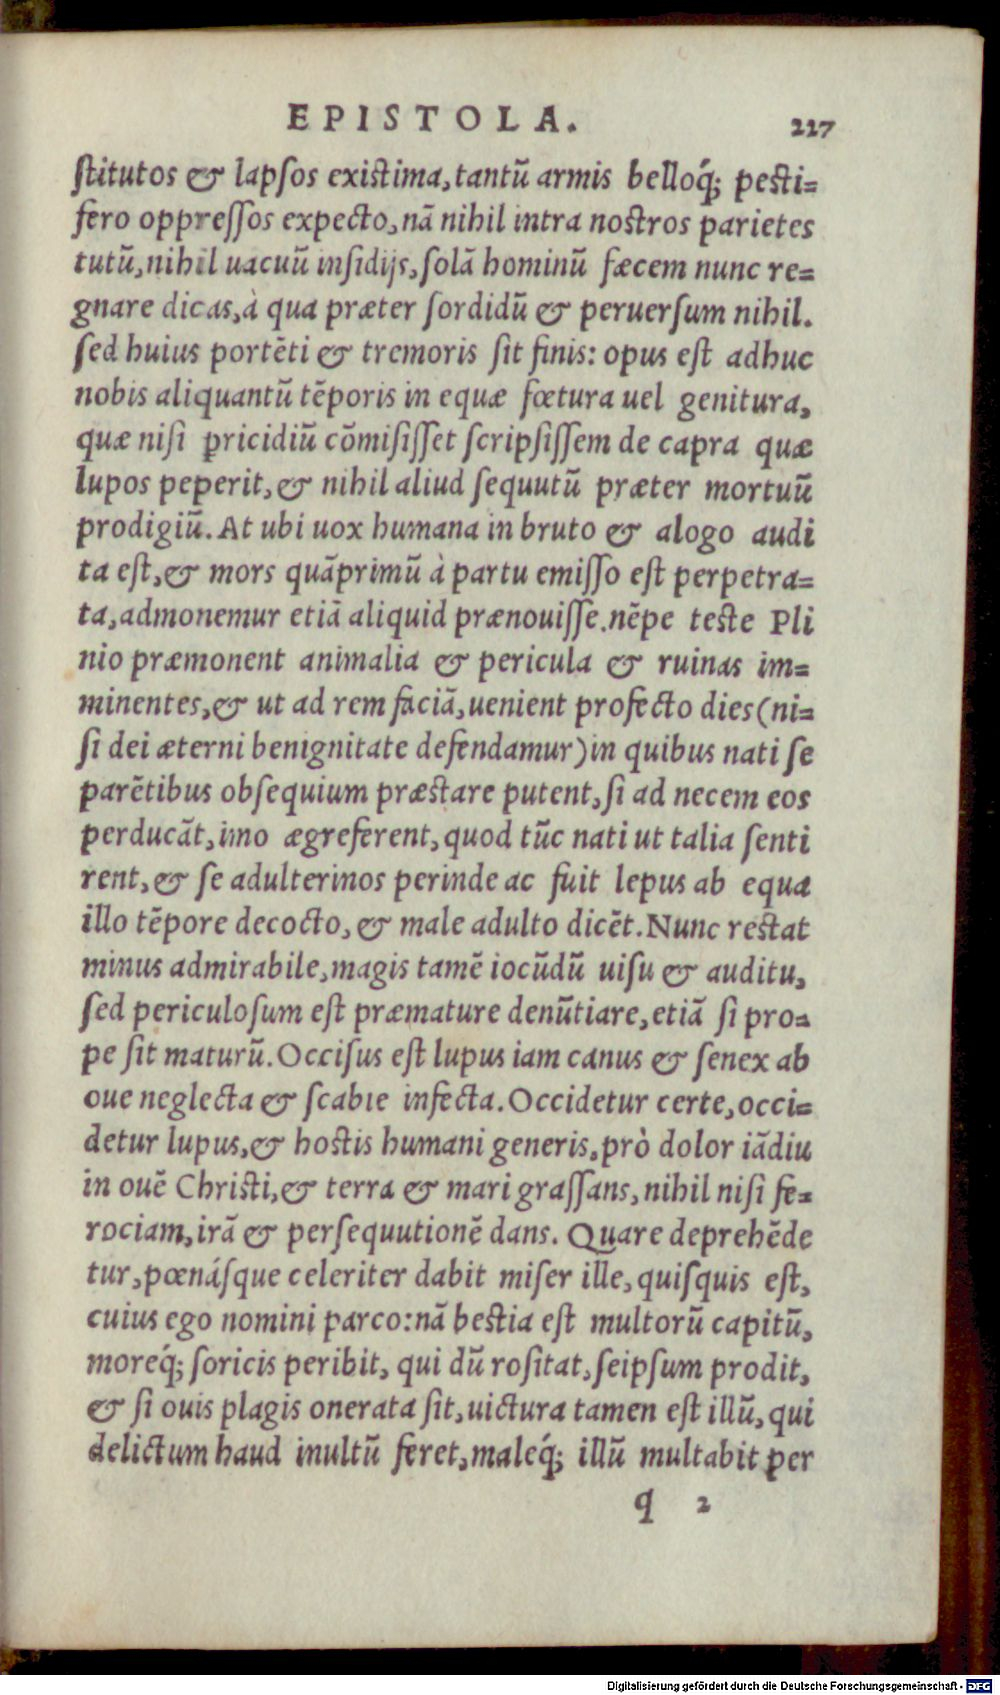 EPISTOLA. 227
stitutos & lapsos existima, tantũ armis belloq́; pesti=
fero oppressos expecto, nã nihil intra nostros parietes
tutũ, nihil uacuũ insidijs, solã hominũ fæcem nunc re=
gnare dicas, à qua præter sordidũ & peruersum nihil.
sed huius portẽti & tremoris sit finis: opus est adhuc
nobis aliquantũ tẽporis in equæ fœtura uel genitura,
quæ nisi ꝑricidiũ cõmisisset scripsissem de capra quæ
lupos peperit, & nihil aliud sequutũ præter mortuũ
prodigiũ. At ubi uox humana in bruto & alogo audi
ta est, & mors quãprimũ à partu emisso est perpetra=
ta, admonemur etiã aliquid prænouisse. nẽpe teste Pli
nio præmonent animalia & pericula & ruinas im=
minentes, & ut ad rem faciã, uenient profecto dies (ni=
si dei æterni benignitate defendamur) in quibus nati se
parẽtibus obsequium præstare putent, si ad necem eos
perducãt, imo ægreferent, quod tũc nati ut talia senti
rent, & se adulterinos perinde ac fuit lepus ab equa
illo tẽpore decocto, & male adulto dicẽt. Nunc restat
minus admirabile, magis tamẽ iocũdũ uisu & auditu,
sed periculosum est præmature denũtiare, etiã si pro=
pe sit maturũ. Occisus est lupus iam canus & senex ab
oue neglecta & scabie infecta. Occidetur certe, occi=
detur lupus, & hostis humani generis, prò dolor iãdiu
in ouẽ Christi, & terra & mari grassans, nihil nisi fe=
rociam, irã & persequutionẽ dans. Quare deprehẽde
tur, pœnásque celeriter dabit miser ille, quisquis est,
cuius ego nomini parco: nã bestia est multorũ capitũ,
moreq́; soricis peribit, qui dũ rositat, seipsum prodit,
& si ouis plagis onerata sit, uictura tamen est illũ, qui
delictum haud inultũ feret, maleq́; illũ multabit per
q 2
Digitalisierung gefördert durch die Deutsche Forschungsgemeinschaft - DFG